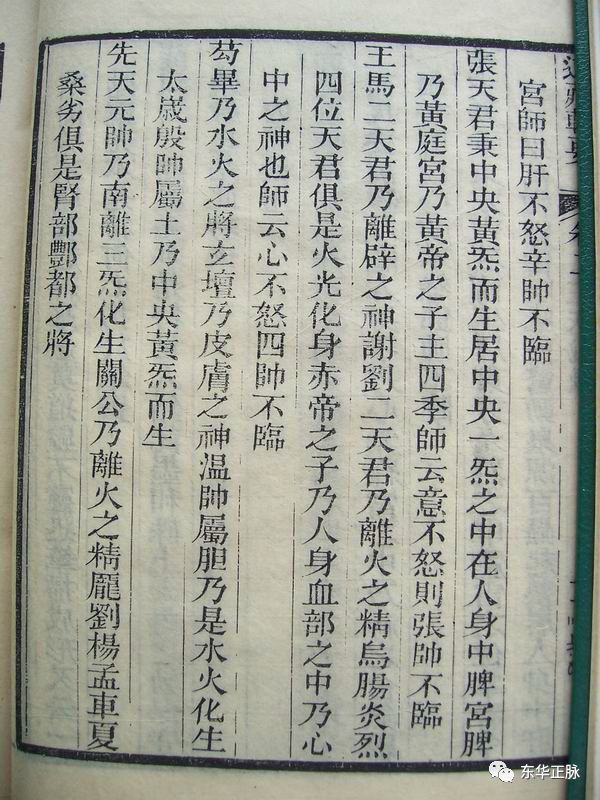 宮師曰肝不怒辛帥不臨
張天君秉中央黃炁而生居中央一炁之中在人身中脾宮脾
乃黃庭宮乃黃帝之子主四季師云意不怒則張帥不臨
王馬二天君乃離辟之神謝劉二天君乃離火之精烏腸炎烈
四位天君俱是火光化身赤帝之子乃人身血部之中乃心
中之神也師云心不怒四帥不臨
芶畢乃水火之將玄壇乃皮膚之神温帥屬胆乃是水火化生
太歲殷帥屬土乃中央黃炁而生
先天元帥乃南離三炁化生關公乃離火之精龐劉楊孟車夏
桑劣俱是腎部酆都之將
东华正脉